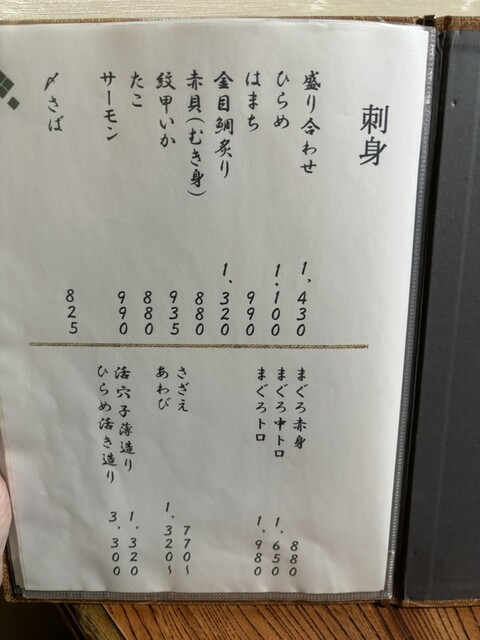 刺身
盛り合わせ 1,430
ひらめ 1,100
はまち 990
金目鯛炙り 1,320
赤貝(むき身) 880
紋甲いか 935
たこ 880
サーモン 990
〆さば 825
まぐろ赤身 880
まぐろ中トロ 1,650
まぐろトロ 1,980
さざえ 770〜
あわび 1,320〜
活穴子薄造り 1,320
ひらめ活き造り 3,300